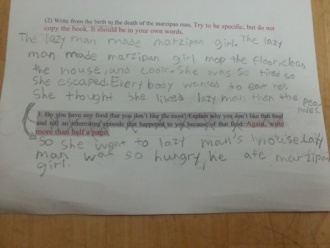 (2) Write from the birth to the death of the marzipan man. Try to be specific, but do not
copy the book. It should be in your own words.
The lazy man made marzipan girl. The lazy
man made marzipan girl mop the floor, clean
the house, and cook. She was so tired so
she escaped. Everybody wanted to eat her.
She thought she lived lazy man then the
3. Do you have any food that you don't like the most? Explain why you don't like that food
and tell an interesting episode that happened to you because of that food. Again, write
more than half a page.
So she went to lazy man's house. Lazy
man was so hungry, he ate marzipan
girl.